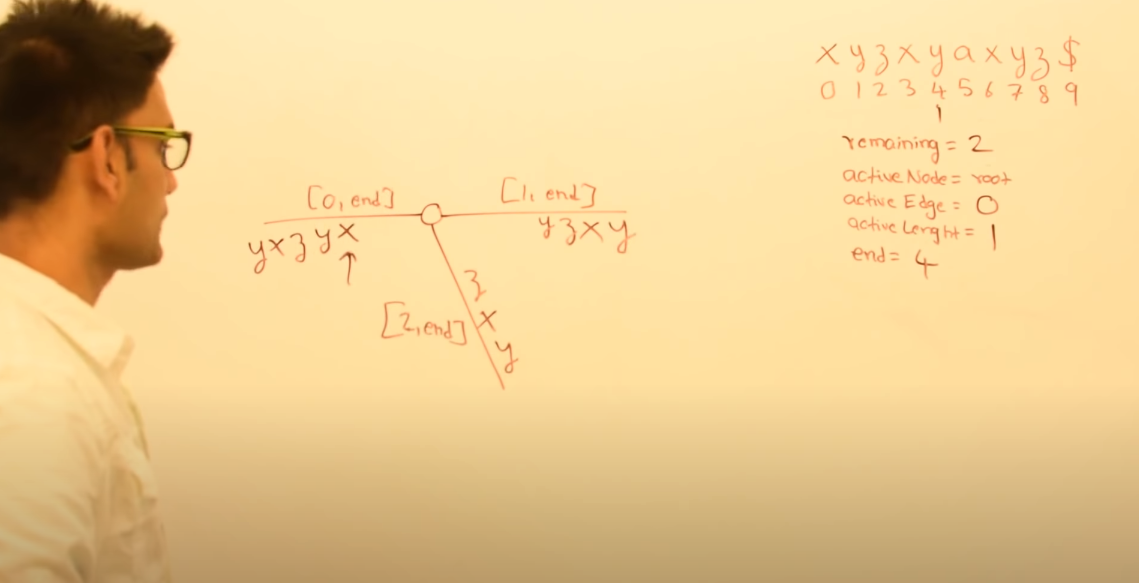 x y z x y a x y z $
0 1 2 3 4 5 6 7 8 9
remaining = 2
activeNode = root
active Edge = 0
active Lenght = 1
end = 4
[0, end]
[1, end]
y x z y x
y z x y
↑
z
x
y
[2, end]